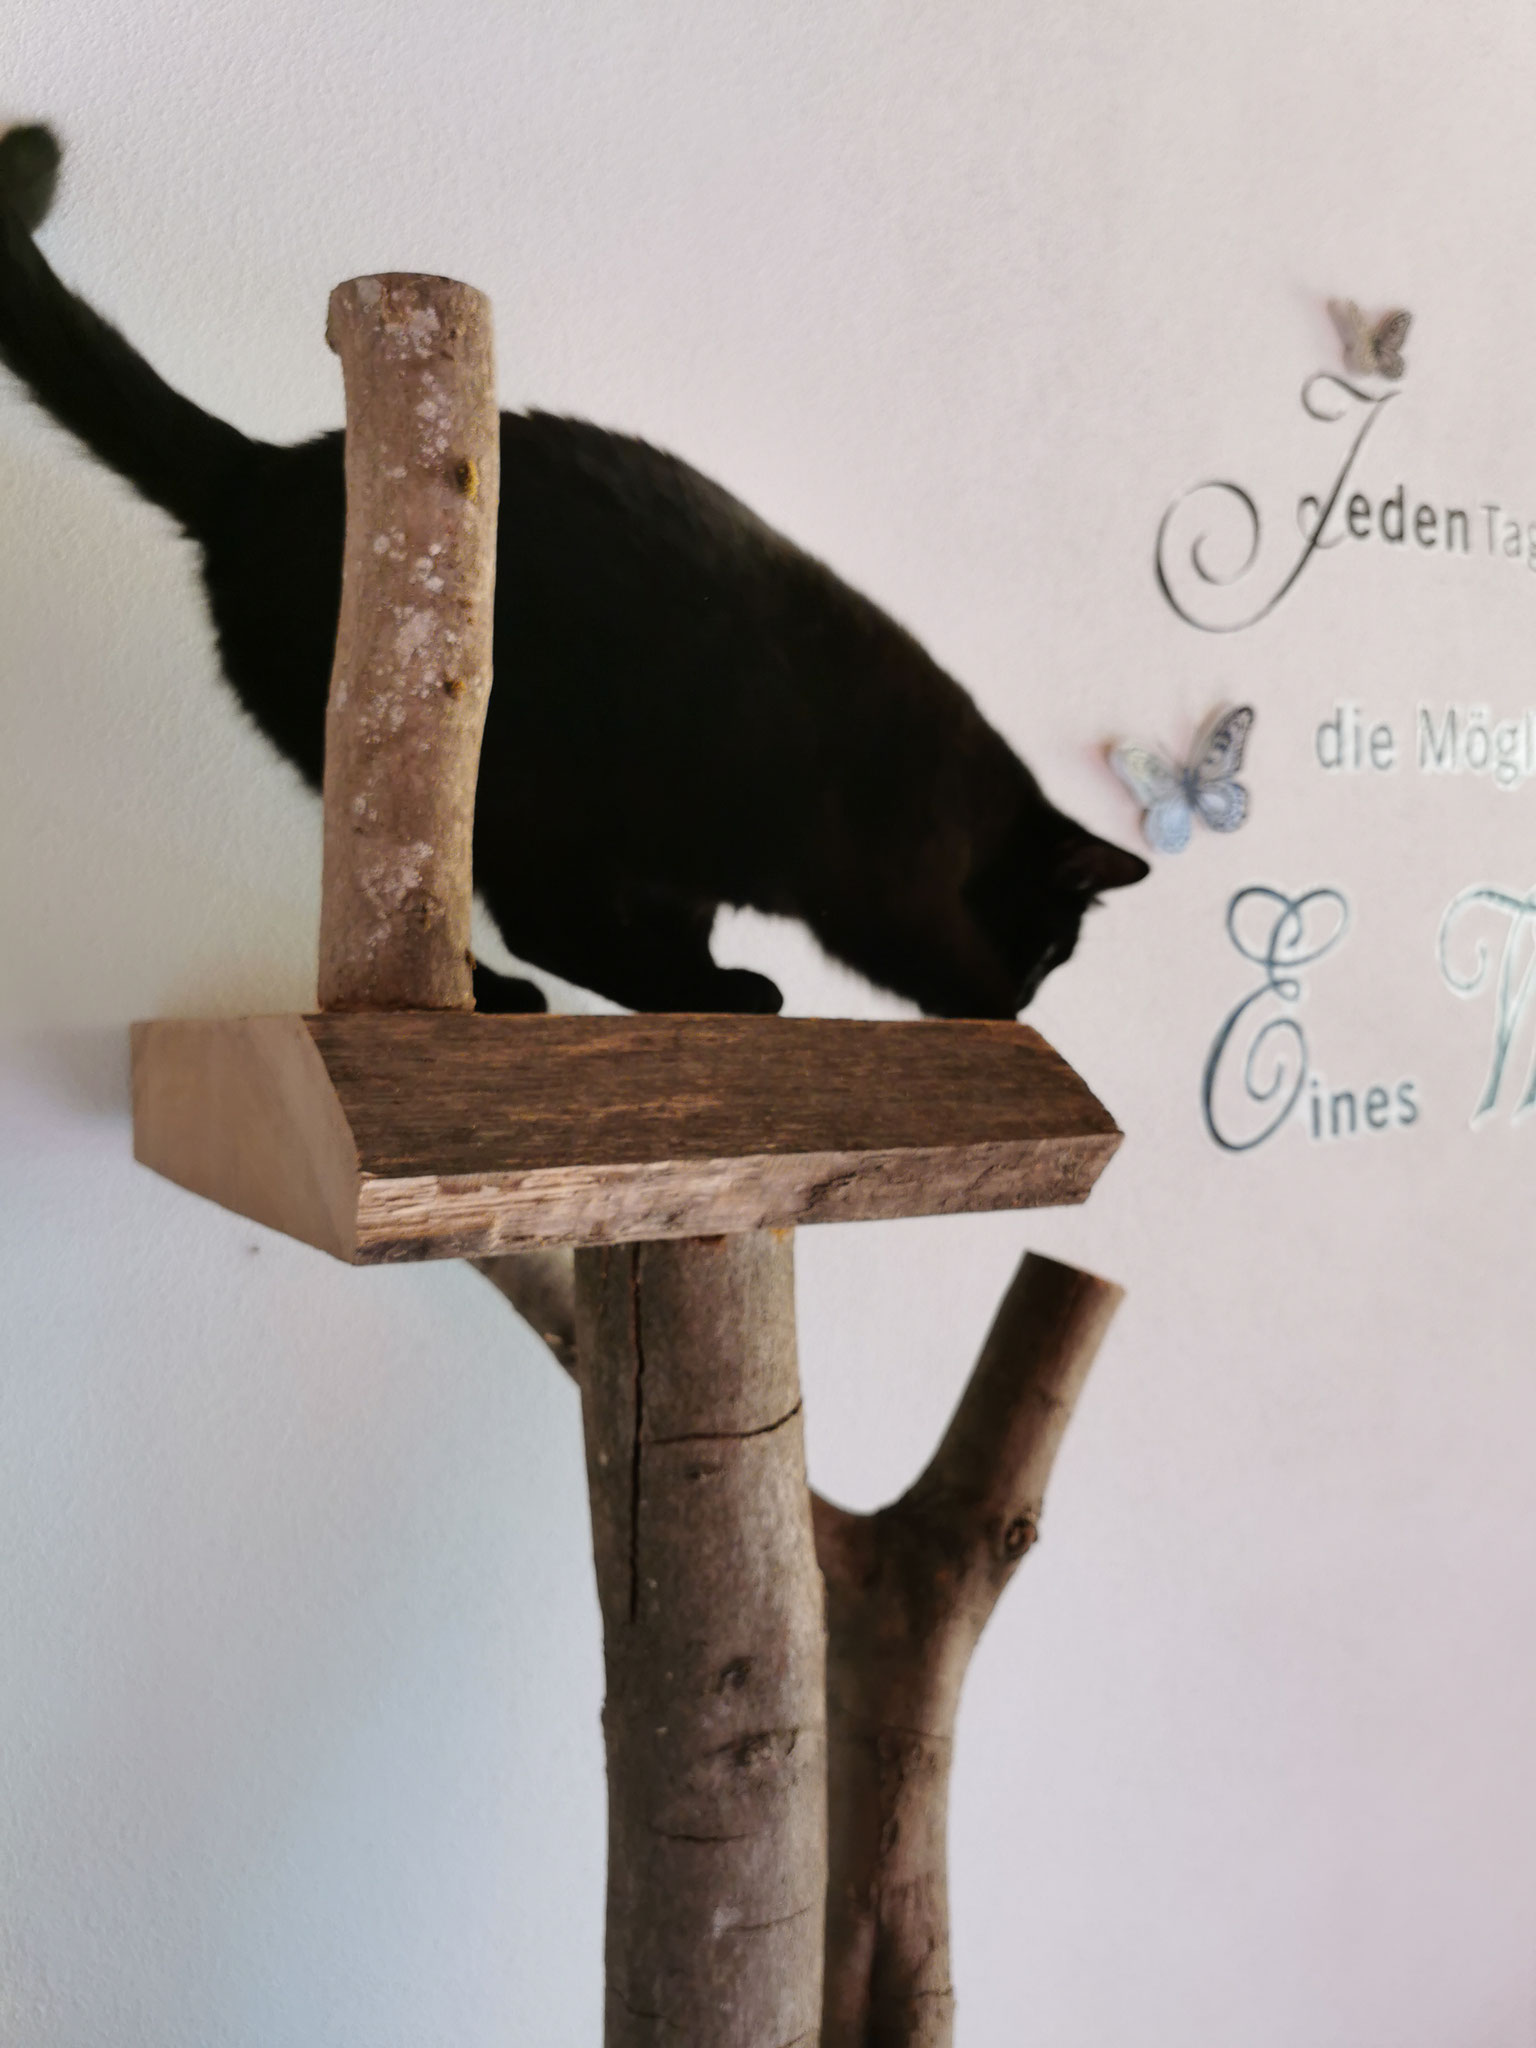 Jeden Tag
die Mögl
Eines W